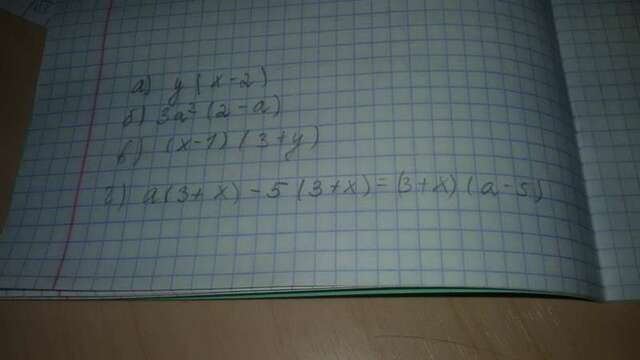 а) y(x-2)
б) 3a²(2-a)
в) (x-1)(3+y)
г) a(3+x)-5(3+x)=(3+x)(a-5)